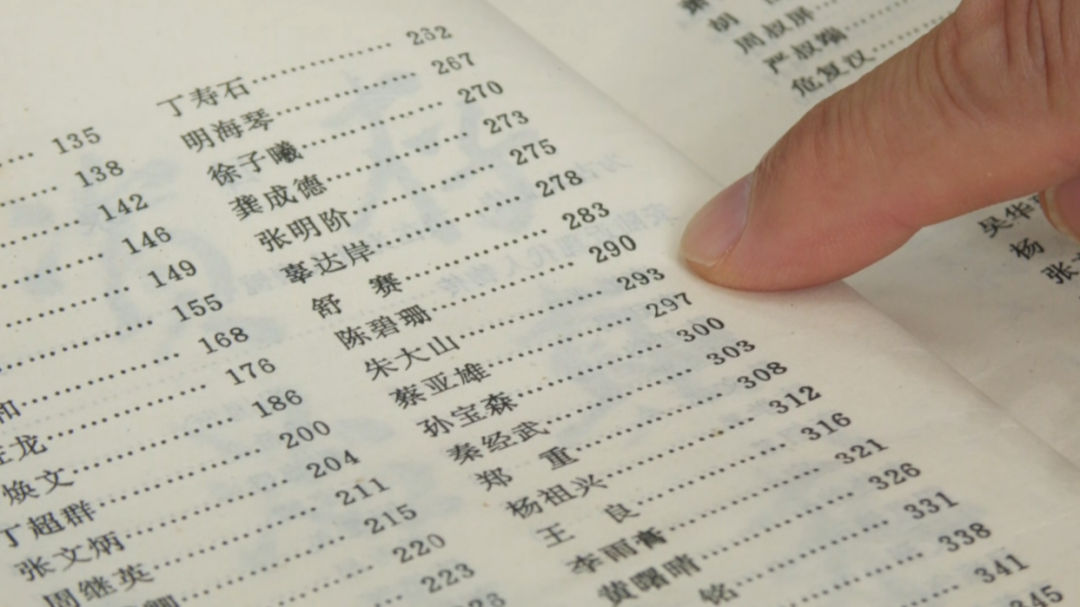 135
138
142
146
149
155
和……168
龙……176
焕文……186
丁超群……200
张文炳……204
周继英……211
215
220
223
丁寿石……232
明海琴……267
徐子曦……270
龚成德……273
张明阶……275
辜达岸……278
舒 赛……283
陈碧珊……290
朱大山……293
蔡亚雄……297
孙宝森……300
秦经武……303
郑 重……308
杨祖兴……312
王 良……316
李丽……321
黄曙晴……326
铭……331
338
341
345
胡
周叔屏
严叔端
危复汉
吴华
杨
张